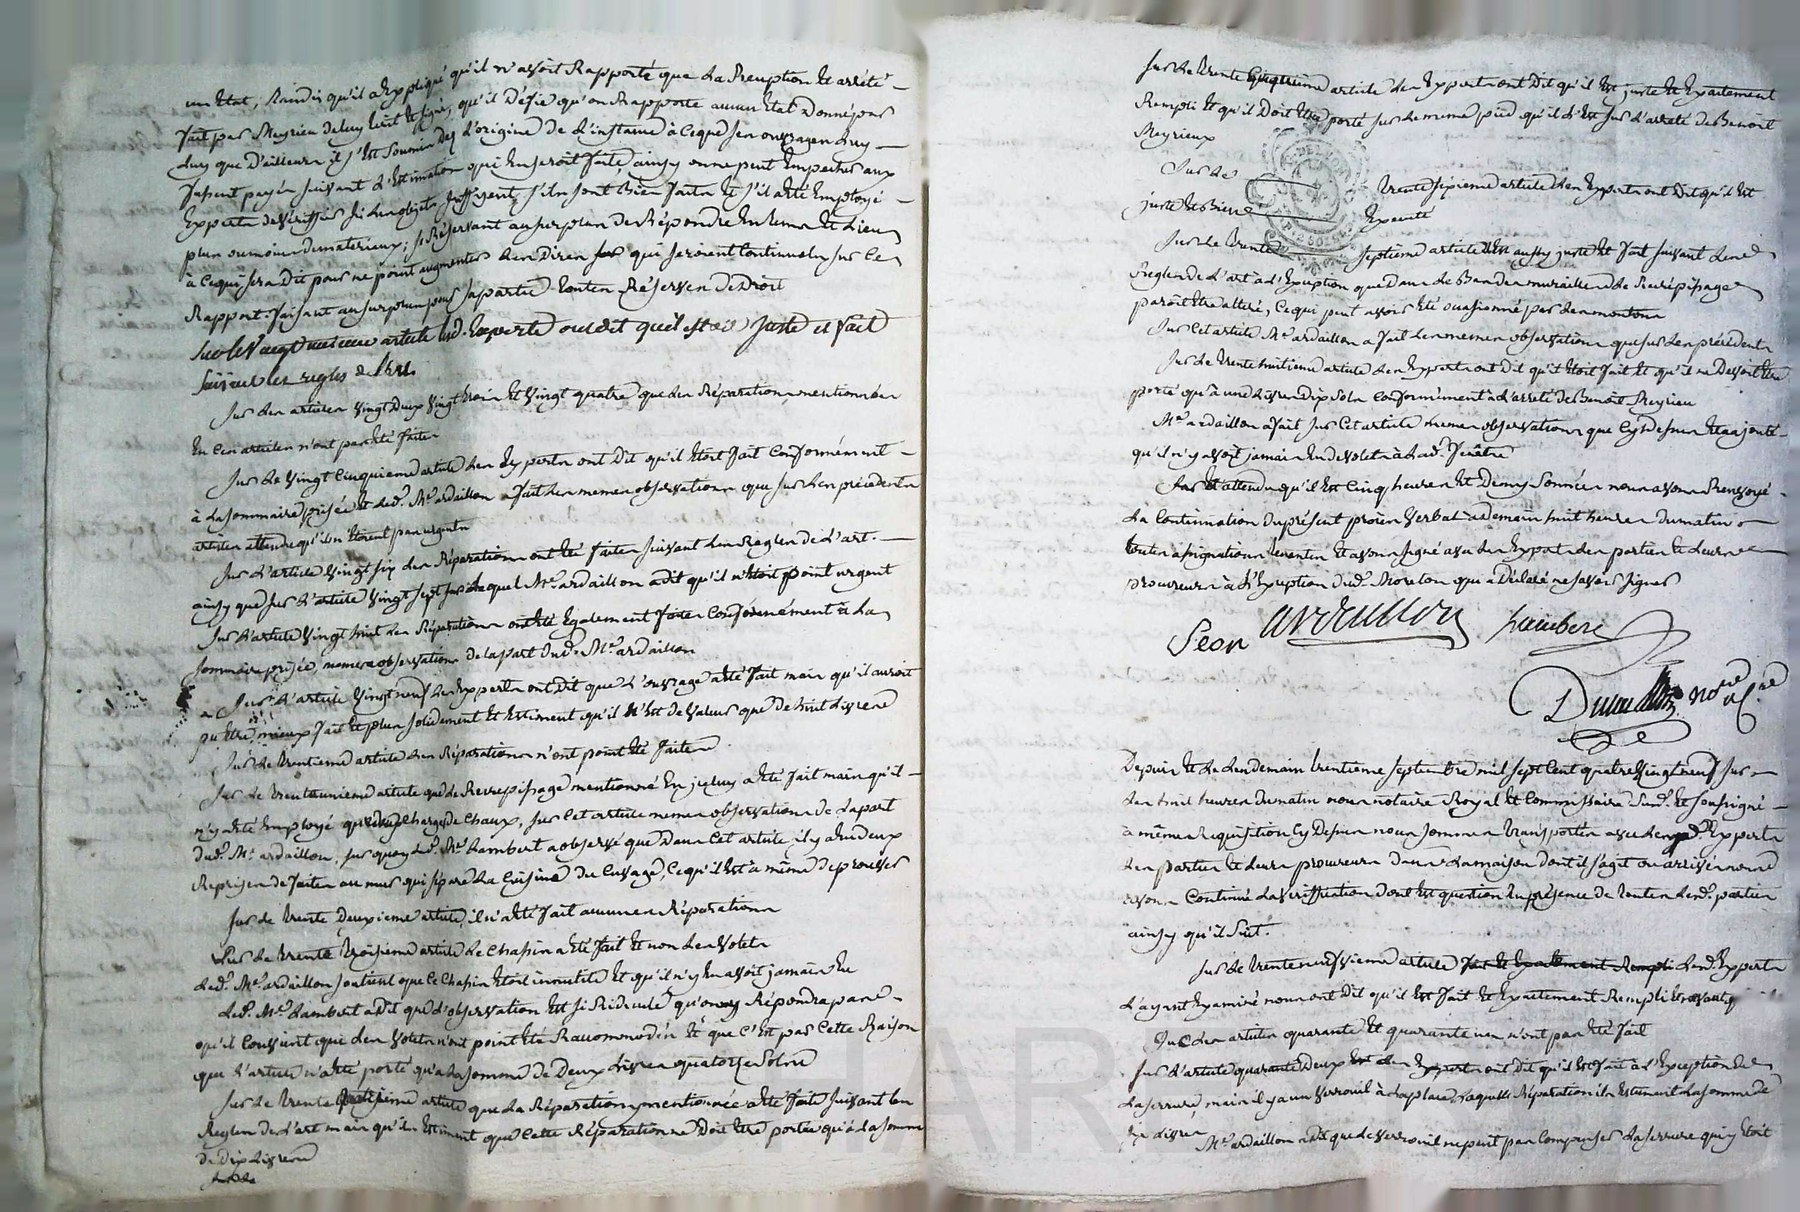 un Etat, tandis qu'il a Expliqué qu'il n'avoit Rapporté que la Preuption Et arrété
fait par Meyrieu de luy ecrit et signé, qu'il Défie qu'on Rapporte aucun Etat Donné par
luy que D'ailleurs il s'est soumis Des L'origine de L'instance à ce que ses ouvrages luy
fussent payés suivant L'Estimation qui En seroit faite, ainsy on ne peut Empecher aux
Experts de vérifier si les objets suffisent, s'ils sont Bien faits Et s'il a été Employé
plus ou moins de materieaux; se Réservant au surplus de Répondre En tems Et Lieu
à ce qui sera Dit pour ne point augmenter les Dires qui seroient continuels sur le
Rapport. faisant au surplus pour sa partie toutes Réserves de Droit
Sur le Vingt unieme article les d. Experts ont dit qu'il estoit juste et fait
suivant les regles de l'art.
Sur les articles vingt Deux Vingt trois Et Vingt quatre que les Réparations mentionnées
En ces articles n'ont pas Eté faites
Sur le Vingt Cinquieme article les Experts ont Dit qu'il Etoit fait Conformément
à la sommaire prisée Et led. Me. ardaillon a fait les memes observations que sur les précédents
articles attendu qu'ils n'étoient pas urgents
Sur L'article Vingt six les Réparations ont Eté faites suivant les Regles de L'art.
ainsy que sur L'article Vingt sept sur lequel Me. ardaillon a dit qu'il n'étoit point urgent
Sur L'article Vingt huit les Réparations ont Eté Egalement faites Conformément à la
sommaire prisée, memes observations de la part dud. Me. ardaillon
Sur L'article Vingt neuf les Experts ont Dit que L'ouvrage a été fait mais qu'il auroit
pu Etre mieux fait Et plus solidement Et Estiment qu'il N'Est de Valeur que de huit Livres
Sur le trentieme article les Réparations n'ont point Eté faites
Sur le trente unieme article que le Recrepissage mentionné En jceluy a Eté fait mais qu'il
n'y a Eté Employé que charges de Chaux, sur Cet article memes observations de la part
dud. Me. ardaillon, sur quoy led. Me. Lambert a observé que Dans Cet article il y a En deux
Reprises de faites au mur qui sépare la Cuisine du Cuvage, Ce qu'il Est à même de prouver
Sur le trente Deuxieme article il n'a Eté fait aucunes Réparations
Sur le trente troisieme article le Chassin a Eté fait Et non les Volets
led. Me. ardaillon soutient que le Chassin Etoit innutile Et qu'il n'y En avoit jamais Eu
led. Me. Lambert a Dit que L'observation Est si Ridicule qu'on n'y Répondra pas
qu'il Convient que les Volets n'ont point Eté Raccommodés Et que C'Est par Cette Raison
que L'article n'a Eté porté qu'à la somme de Deux Livres quatorze Sols
Sur le trente quatrieme article que la Réparation mentionnée a Eté faite suivant les
Regles de L'art mais qu'ils Estiment que Cette Réparation ne Doit Etre portée qu'à la somme
de dix Livres
Sur le trente Cinquieme article les Experts ont Dit qu'il Est juste Et Exactement
Rempli Et qu'il Doit Etre porté sur le meme pied qu'il L'Est sur L'arreté de Benoit
Meyrieux
Sur le trente sixieme article les Experts ont Dit qu'il Est
juste Et Bien Executé
Sur le trente septieme article Est aussy juste Et fait suivant les
Regles de L'art à L'Exception que Dans le Bas des murailles le Recrépissage
paroit Etre alteré, Ce qui peut avoir Eté occasionné par les moutons
Sur Cet article Me. ardaillon a fait les memes observations que sur les précédents
Sur le trente huitieme article les Experts ont Dit qu'il Etoit fait Et qu'il ne Devoit Etre
porté qu'à une Livre dix Sols Conformément à L'arreté de Benoit Meyrieu
Me. ardaillon a fait sur Cet article memes observations que Cy Dessus Et a ajouté
qu'il n'y avoit jamais Eu de Volets à la d. fenêtre
Et attendu qu'il Est Cinq heures Et Demy Sonnées nous avons Renvoyé
la Continuation du présent procès Verbal a demain huit heures du matin
toutes assignations tenantes Et avons signé avec les Experts les parties Et leurs
procureurs à L'Exception dud. Moreton qui a Déclaré ne savoir signer
Seon ardaillon Lambert
nore. Re.
Depuis Et le Lendemain trentieme Septembre mil Sept Cent quatre Vingt neuf sur
les huit heures du matin nous notaire Royal Et Commissaire Susd. Et soussigné
à même Requisition Cy Dessus nous sommes transportés avec les d. Experts
les parties Et leurs procureurs dans La maison dont il s'agit ou arrivés nous
avons Continué la Vérification Dont Est question En présence de toutes les d. parties
ainsy qu'il Suit.
Sur le trente neuvieme article fait Et Exactement Rempli les d. Experts
L'ayant Examiné nous ont Dit qu'il Est fait Et Exactement Rempli
Sur les articles quarante Et quarante un n'ont pas Eté fait
Sur L'article quarante Deux les Experts ont Dit qu'il Est fait à L'Exception de
la serrure mais il y a un Verrouil à la place, laquelle Réparation ils Estiment la somme de
Livres
Me. ardaillon a Dit que le Verrouil ne peut pas Compenser la serrure qui y Etoit